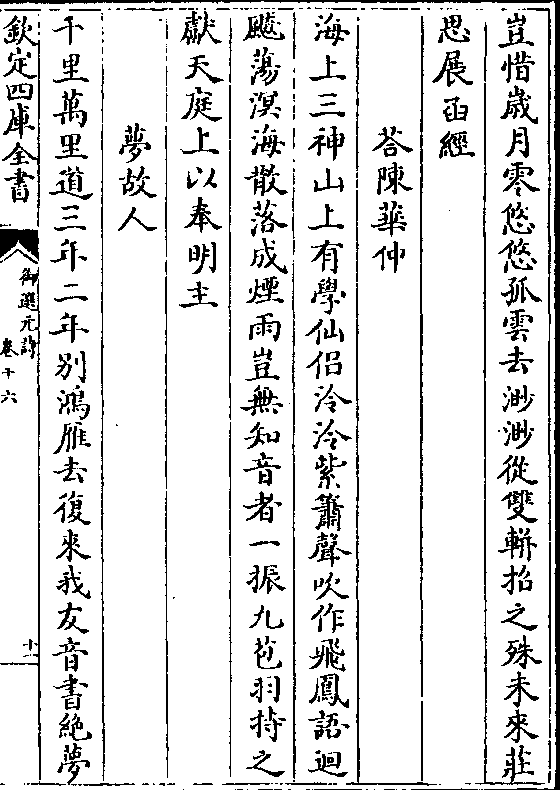 豈惜歲月零悠悠孤雲去渺渺從雙軿招之殊未來莊
思展函經
荅陳華仲
海上三神山上有學仙侶泠泠紫簫聲吹作飛鳳語迴
飈蕩溟海散落成煙雨豈無知音者一振九苞羽持之
獻天庭上以奉明主
夢故人
千里萬里道三年二年別鴻雁去復來我友音書絶夢
欽定四庫全書
御選元詩
卷十六
十一